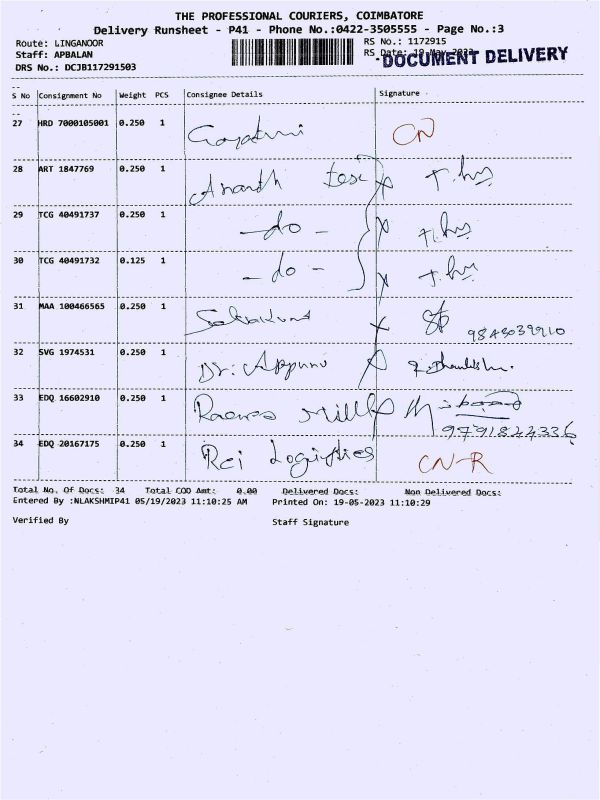 THE PROFESSIONAL COURIERS, COIMBATORE
Delivery Runsheet - P41 - Phone No.:0422-3505555 - Page No.:3
Route: LINGANOOR
RS No.: 1172915
Staff: APBALAN
RS Date: 19-May-2023
DOCUMENT DELIVERY
DRS No.: DCJB117291503
S No Consignment No Weight PCS Consignee Details Signature
27 HRD 7000105001 0.250 1 Gayatri CN
28 ART 1847769 0.250 1 Ananth
29 TCG 40491737 0.250 1 -do-
30 TCG 40491732 0.125 1 -do-
31 MAA 100466565 0.250 1 9843039910
32 SVG 1974531 0.250 1 Dr. Appuni
33 EDQ 16602910 0.250 1 Mill 9791822336
34 EDQ 20167175 0.250 1 Rci Logistics CN-R
Total No. Of Docs: 34 Total COD Amt: 0.00 Delivered Docs: Non Delivered Docs:
Entered By :NLAKSHMIP41 05/19/2023 11:10:25 AM Printed On: 19-05-2023 11:10:29
Verified By Staff Signature